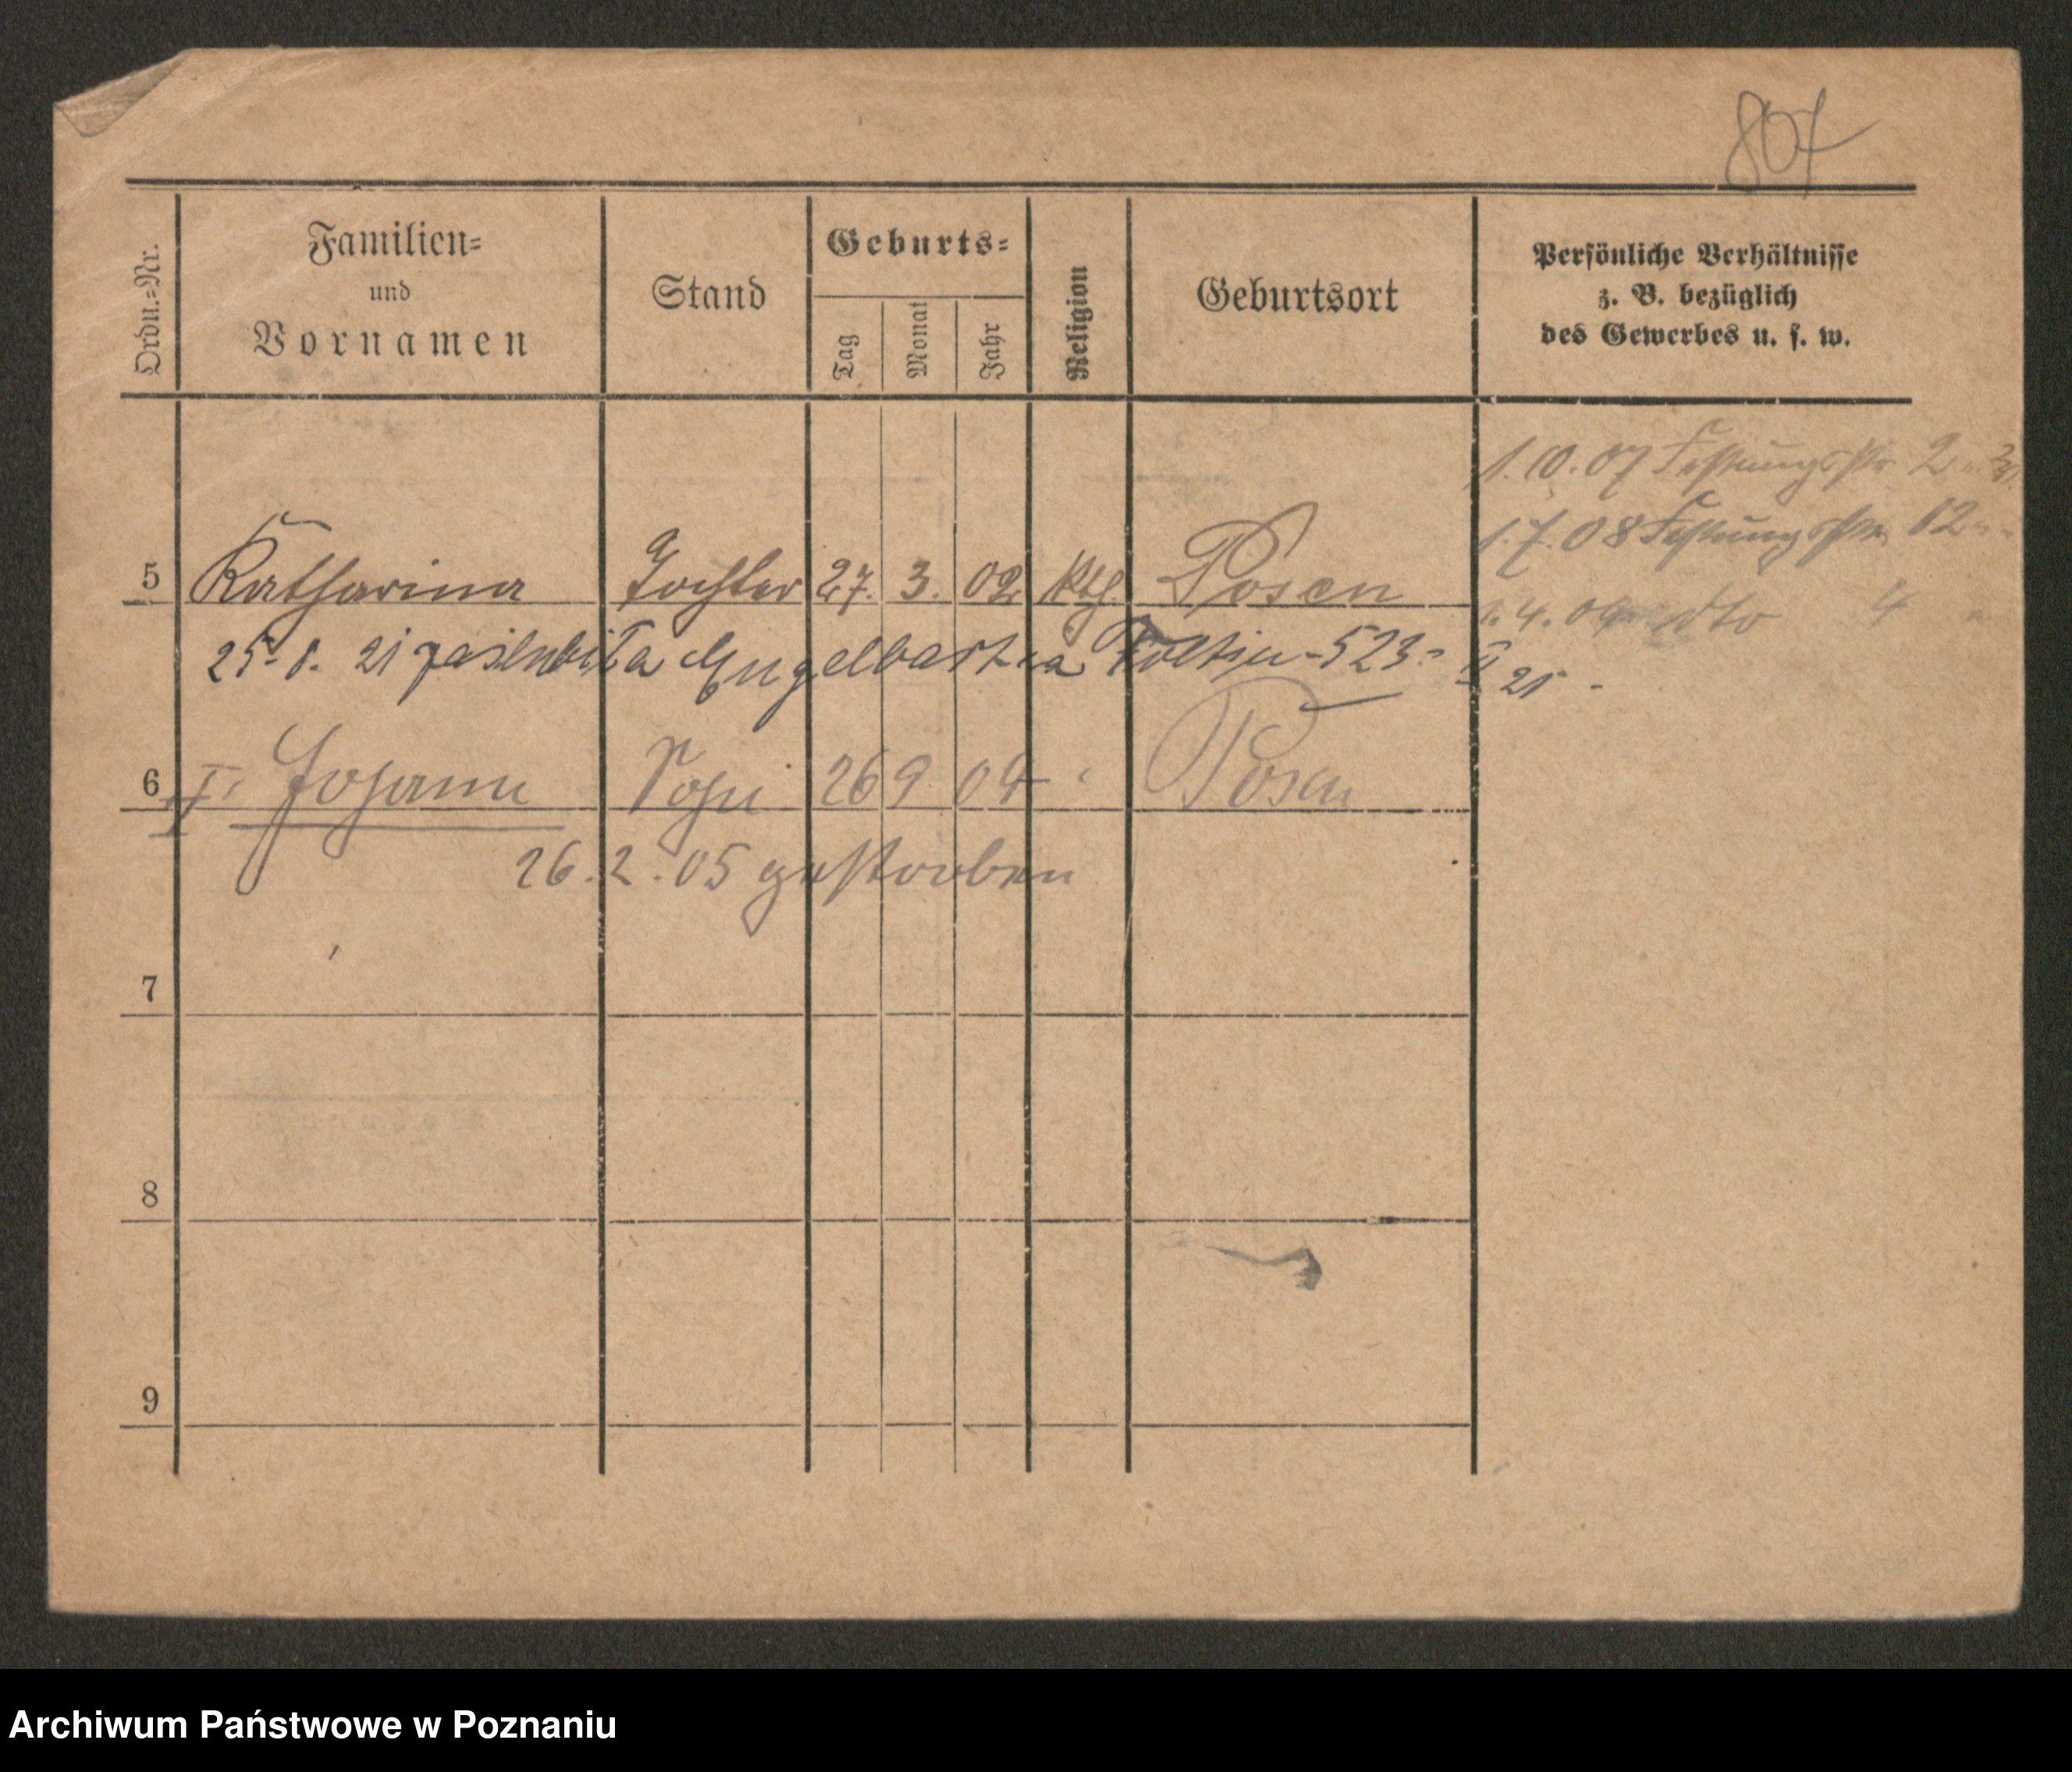 807
Ordn.=Nr.
Familien=
und
Vornamen
Stand
Geburts=
Tag
Monat
Jahr
Religion
Geburtsort
Persönliche Verhältnisse
z. B. bezüglich
des Gewerbes u. s. w.
1.10.07 Festungsstr 2
1.7.08 Festungsstr 12
1.4.09 dto 4
5 Katharina Tochter 27. 3. 02 kth. Posen
25. 8. 21 zaślubiła Engelbarta 523 21 -
6 Johann Sohn 26 9 04 Posen
26.2.05 gestorben
7
8
9
Archiwum Państwowe w Poznaniu